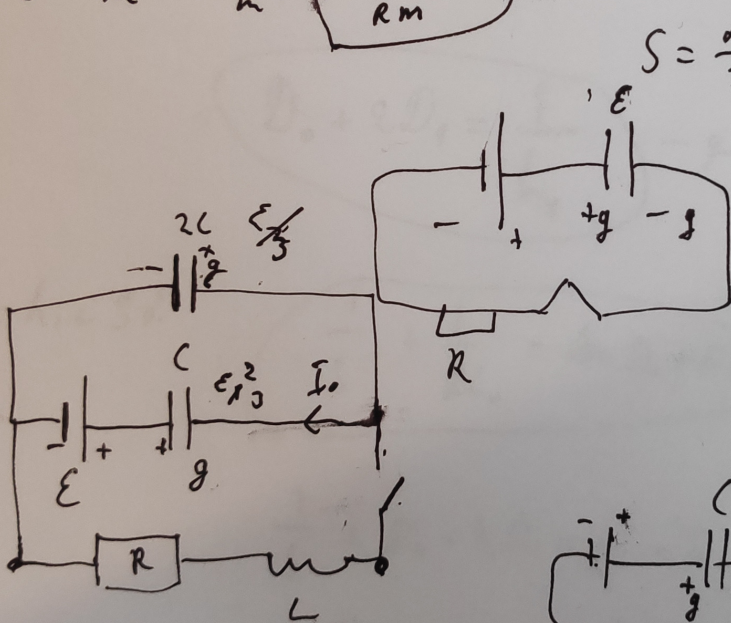 R m
S =
ε
- +
+g - g
R
2C
ε/3
+
g
C
ε 2/3
I₀
- + +
ε
g
R
L
- +
C
+g